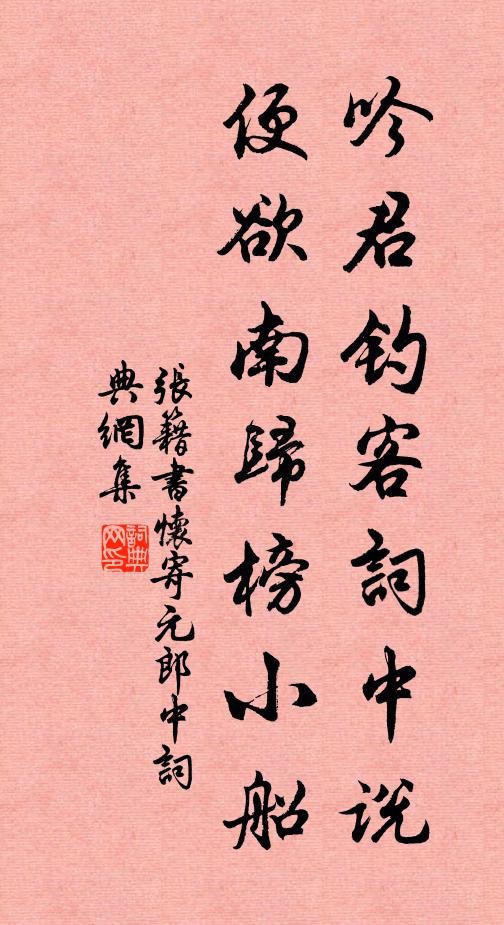 吟君釣客詞中說
便欲南歸榜小船
張籍書懷寄元郎中詞
典網集
詞典网印